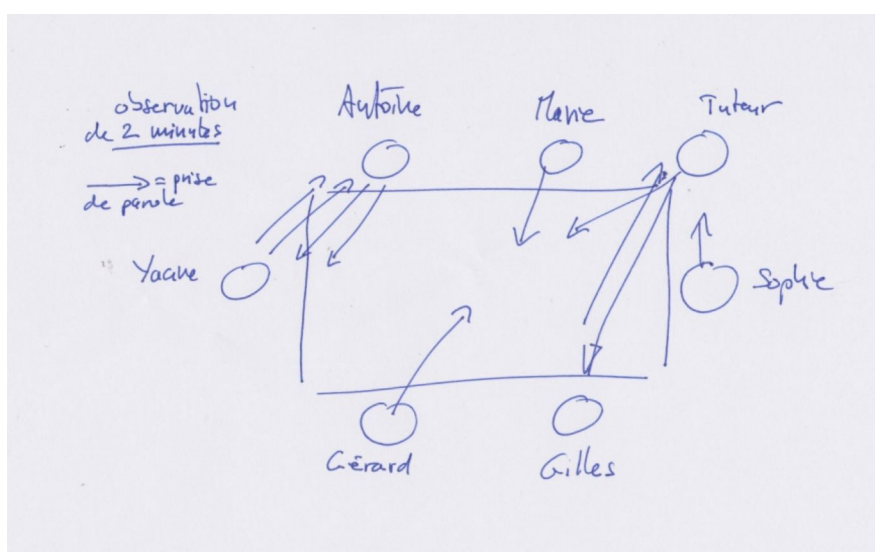 observation
de 2 minutes
→ = prise
de parole
Antoine
Marie
Tuteur
Yacine
Sophie
Gérard
Gilles